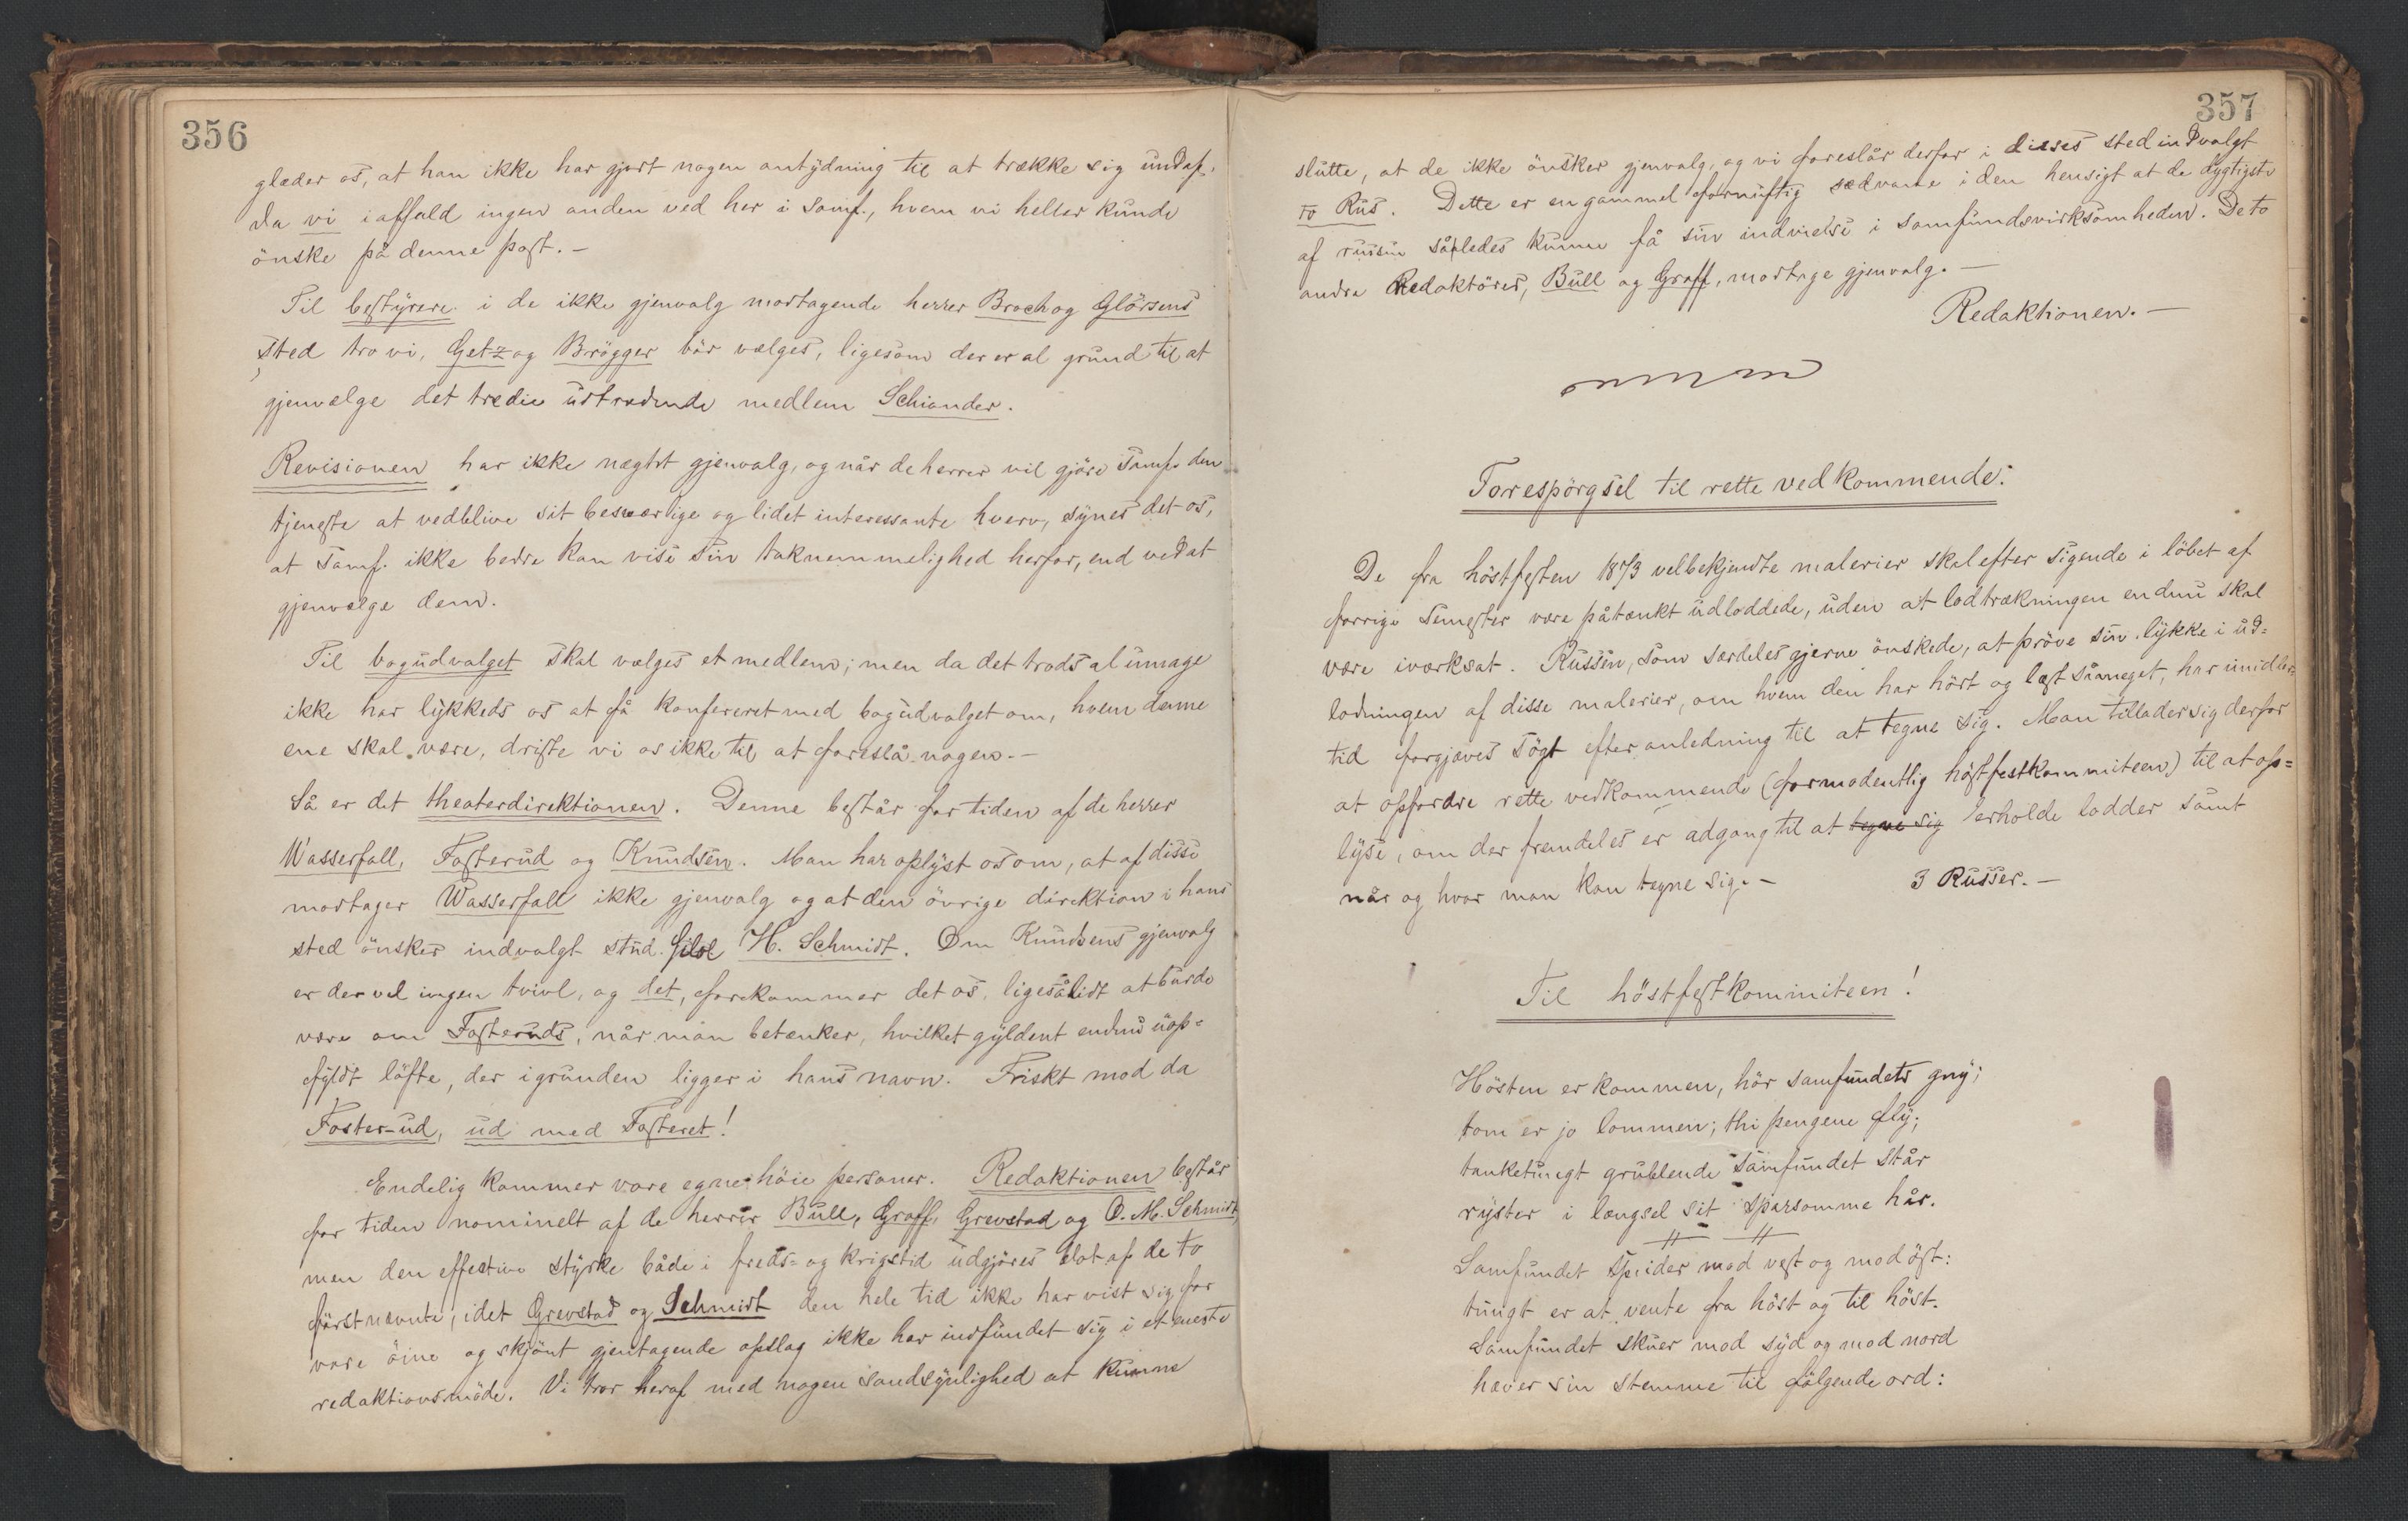 356
glæder os, at han ikke har gjort nogen antydning til at trække sig undaf,
da vi iaffald ingen anden ved her i Samf., hvem vi heller kunde
önske på denne post. —
Til bestyrere i de ikke gjenvalg modtagende herrer Broch og Glörsens
sted tro vi, Getz og Brögger bör vælges, ligesom der er al grund til at
gjenvælge det tredie udtrædende medlem Schiander.
Revisionen har ikke nægtet gjenvalg, og når de herrer vil gjöre Samf. den
tjeneste at vedblive sit besværlige og lidet interessante hverv, synes det os,
at Samf. ikke bedre kan vise sin taknemmelighed herfor, end ved at
gjenvælge dem.
Til bogudvalget skal vælges et medlem; men da det trods al umage
ikke har lykkeds os at få konfereret med bogudvalget om, hvem denne
ene skal være, driste vi os ikke til at foreslå nogen. —
Så er det theaterdirektionen. Denne består for tiden af de herrer
Wasserfall, Fosterud og Knudsen. Man har oplyst os om, at af disse
modtager Wasserfall ikke gjenvalg og at den övrige direktion i hans
sted önsker indvalgt stud. filol H. Schmidt. Om Knudsens gjenvalg
er der vel ingen tvivl, og det, forekommer det os, ligesålidt at burde
være om Fosteruds, når man betænker, hvilket gyldent endnu uop=
fyldt löfte, der igrunden ligger i hans navn. Friskt mod da
Foster-ud, ud med Fosteret!
Endelig kommer vore egne höie personer. Redaktionen består
for tiden nominelt af de herrer Bull, Graff, Grevstad og O. M. Schmidt,
men den effective styrke både i freds= og krigstid udgjöres blot af de to
förstnævnte, idet Grevstad og Schmidt den hele tid ikke har vist sig for
vore öine og skjönt gjentagende opslag ikke har indfundet sig i et eneste
redaktionsmöde. Vi tror heraf med nogen sandsynlighed at kunne
357
slutte, at de ikke önsker gjenvalg, og vi foreslår derfor i disses sted indvalgt
to Rus. Dette er en gammel fornuftig sædvane i den hensigt at de dygtigste
af russen således kunne få sin indvielse i samfundsvirksomheden. De to
andre Redaktörer, Bull og Graff, modtage gjenvalg. —
Redaktionen. —
Forespörgsel til rette vedkommende:
De fra höstfesten 1873 velbekjendte malerier skal efter sigende i löbet af
forrige Semester være påtænkt udloddede, uden at lodtrækningen endnu skal
være iværksat. Russen, som særdeles gjerne önskede, at pröve sin lykke i ud=
lodningen af disse malerier, om hvem den har hört og læst såmeget, har imidler=
tid forgjæves sögt efter anledning til at tegne sig. Man tillader sig derfor
at opfordre rette vedkommende (formodentlig höstfestkommiteen) til at op=
lyse, om der fremdeles er adgang til at tegne sig erholde lodder samt
når og hvor man kan tegne sig. —
3 Russer. —
Til höstfestkommiteen!
Hösten er kommen, hör samfundets gny;
tom er jo lommen; thi pengene fly;
tanketungt grublende samfundet står
ryster i længsel sit sparsomme hår.
Samfundet speider mod vest og mod öst:
tungt er at vente fra höst og til höst.
Samfundet skuer mod syd og mod nord
hæver sin stemme til fölgende ord: